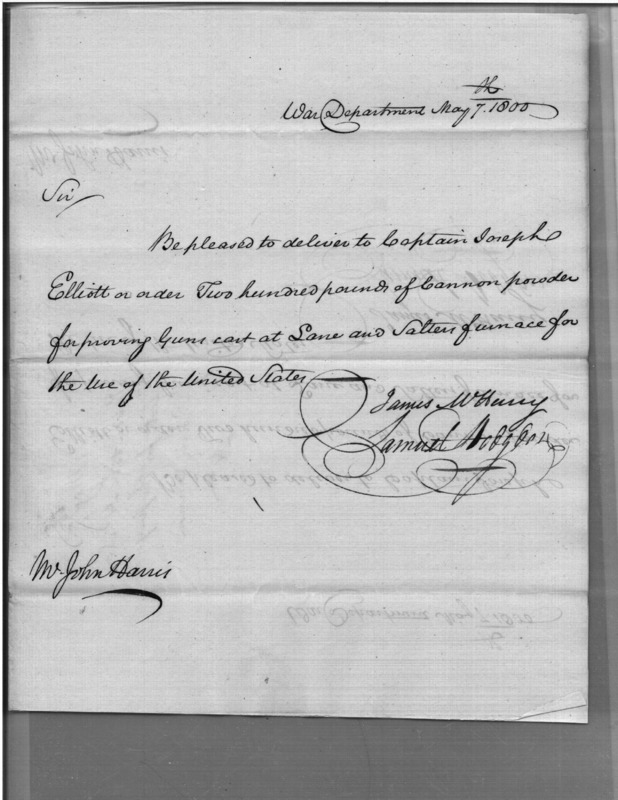 War Department May 7.th 1800
Sir
Be pleased to deliver to Captain Joseph
Elliott or order Two hundred pounds of Cannon powder
for proving Guns cast at Lane and Salters furnace for
the Use of the United States
James McHenry
Samuel Hodgdon
Mr John Harris